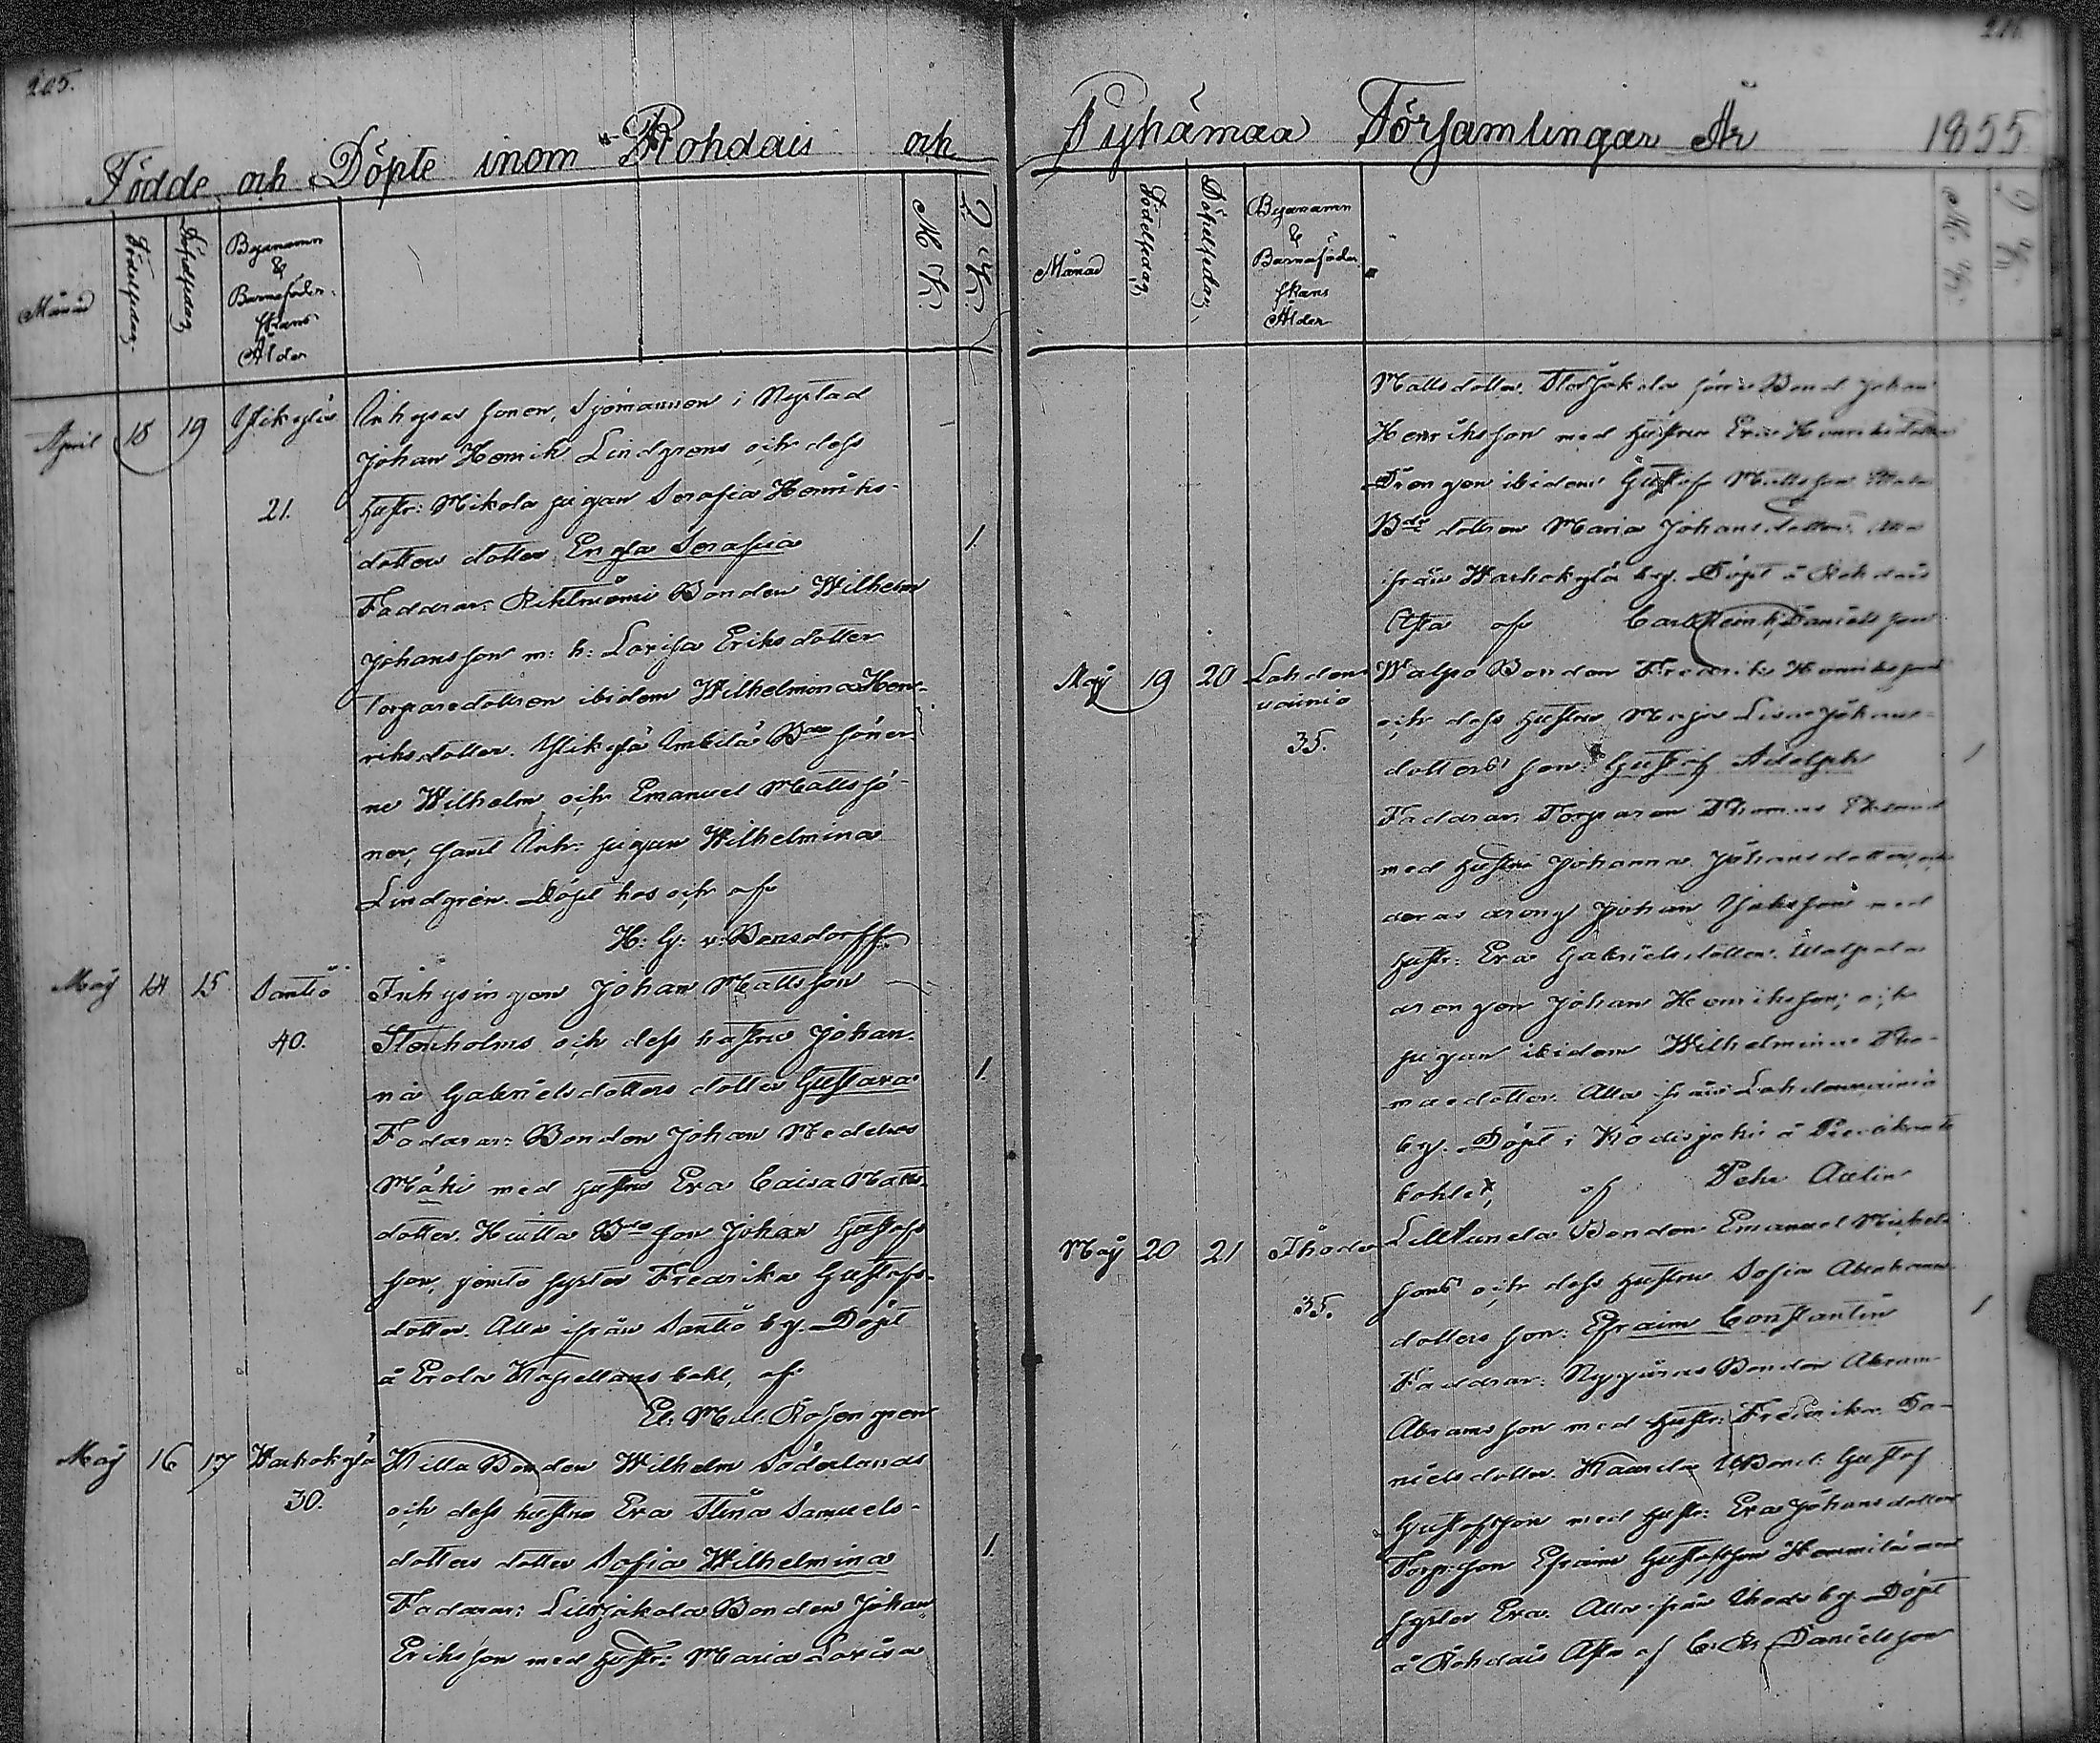 205.
Födde och Döpte inom Rohdais och
Månad
Födelsedag
Döpelsedag
Byanamn
&
Barnaföder-
skans
Ålder
M. K.
Q. K.
April 18 19 Ylikylä Inhyses sonen, Sjömannen i Nystad
Johan Henrik Lindgrens och dess
21. hustr: Mikola pigan Serafia Henriks-
dotters dotter Engla Serafia 1
Faddrar: Bonden Wilhelm
Johansson m: h: Lovisa Eriksdotter
Torparedottren ibidem Wilhelmina Hen-
riksdotter. Ylikylä Bde söner-
ne Wilhelm och Emanuel Mattssö-
ner, samt Inh: pigan Wilhelmina
Lindgrén. Döpt hos och af
H: G: v: Bensdorff
Maj 14 15 Santiö Inhysingen Johan Mattsson
40. Stenholms och dess hustru Johan-
na Gabrielsdotters dotter Gustava 1.
Faddrar: Bonden Johan
Mäki med hustru Eva Caisa Matts-
dotter. Bde son Johan Gustafs
son, jemte syster Fredrika Gustafs-
dotter. Alla ifrån Santiö by. Döpt
å Erola Kapellans bohl, af
El: Rosengren
Maj 16 17 Warhokylä Killa Bonden Wilhelm Söderlunds
30. och dess hustru Eva Stina Samuels-
dotters dotter Sofia Wilhelmina 1.
Faddrar: Lilljakola Bonden Johan
Eriksson med hustr: Maria Lovisa
Pyhämaa Församlingar År 1855
Månad
Födelsedag
Döpelsedag
Byanamn
&
Barnaföder
skans
Ålder
M. K.
Q. K.
Mattsdotter. Bond Johan
Henriksson med hustru Eva Henriksdotter
Drengen ibidem Gustaf Mattsson
Bde dottren Maria Johansdotter. Alla
ifrån Warhokylä by. Döpt å Rohdais
af Carl Henr: Danielsson
Maj 19 20 Lahden Walpo Bonden Fredrik Henrikssons
vainio och dess hustru Maja Lisa Johans-
35. dotters son: Gustaf Adolph 1
Faddrar: Torparen Thomas
med hustru Johanna Johansdotter, och
deras dreng Johan med
hustr: Eva Gabrielsdotter.
drengen Johan Henriksson; och
pigan ibidem Wilhelmina Tho-
masdotter. Alla från Lahdenvainio
by. Döpt i å
bohlet, af Pehr
Maj 20 21 Ihode Lilltunela Bonden Emanuel Michels
35. sons och dess hustru Sofia Abrahams
dotters son: Efraim Constantin 1
Faddrar: Bonden Abram
Abramsson med hustr: Fredrika Da-
nielsdotter. Bond: Gustaf
Gustafsson med hustr: Eva Johansdotter
Torp: son Efraim Gustafsson med
syster Eva. Alla ifrån Ihode by. Döpt
å Rohdais af C: H: Danielsson